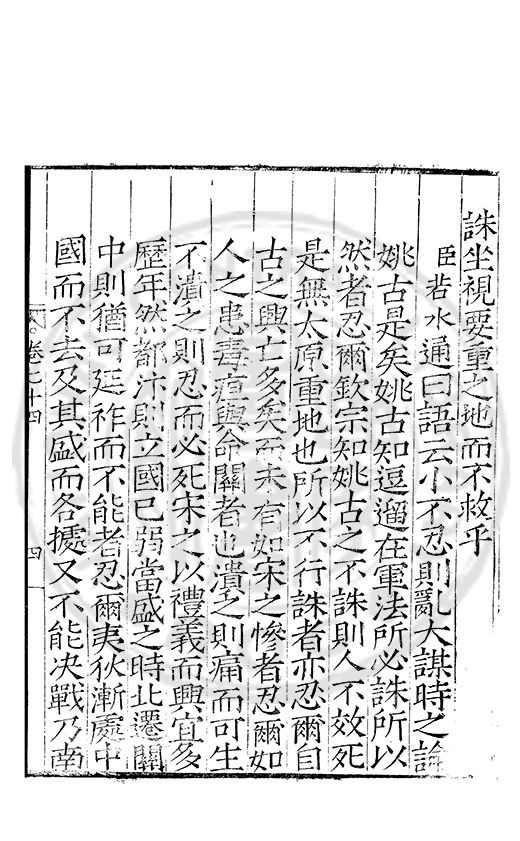 誅坐視要重之地而不救乎
臣若水通曰語云小不忍則亂大謀時之論
姚古是矣姚古知逗遛在軍法所必誅所以
然者忍爾欽宗知姚古之不誅則人不效死
是無太原重地也所以不行誅者亦忍爾自
古之興亡多矣而未有如宋之慘者忍爾如
人之患毒疽與命關者也潰之則痛而可生
不潰之則忍而必死宋之以禮義而興宜多
歷年然都汴則立國已弱當盛之時北遷關
中則猶可延祚而不能者忍爾夷狄漸處中
國而不去及其盛而各據又不能決戰乃南
卷七十四
四